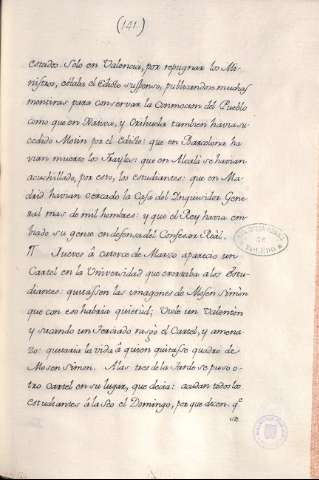 (141)
estados. Solo en Valencia, por repugnar los Mi-
nistros, estaba el Edicto suspenso, publicandon muchas
mentiras para conservar la Conmocion del Pueblo
como que en Xativa, y Orihuela tambien havia su-
cedido Motin por el Edicto: que en Barcelona ha-
vian muerto los Frayles: que en Alcalá se havian
acuchillado, por esto, los estudiantes: que en Ma-
drid havian cercado la Casa del Inquisidor Gene-
ral mas de mil hombres: y que el Rey havia em-
biado su gente en defensa del Confesor Real.
¶ Jueves á catorce de Marzo aparecio un
Cartel en la Universidad que exortaba a los Estu-
diantes: quitassen las imagenes de Mosen Simon
que con eso habria quietud; Viole un Valentin
y sacando un Terciado rasgò el Cartel, y amena-
zo: quitaria la vida á quien quitasse quadro de
Mosen Simon. A las tres de la tarde se puso o-
tro Cartel en su lugar, que decia: acudan todos los
estudiantes á la Seo el Domingo, por que dicen, q.e
se
TOLEDO